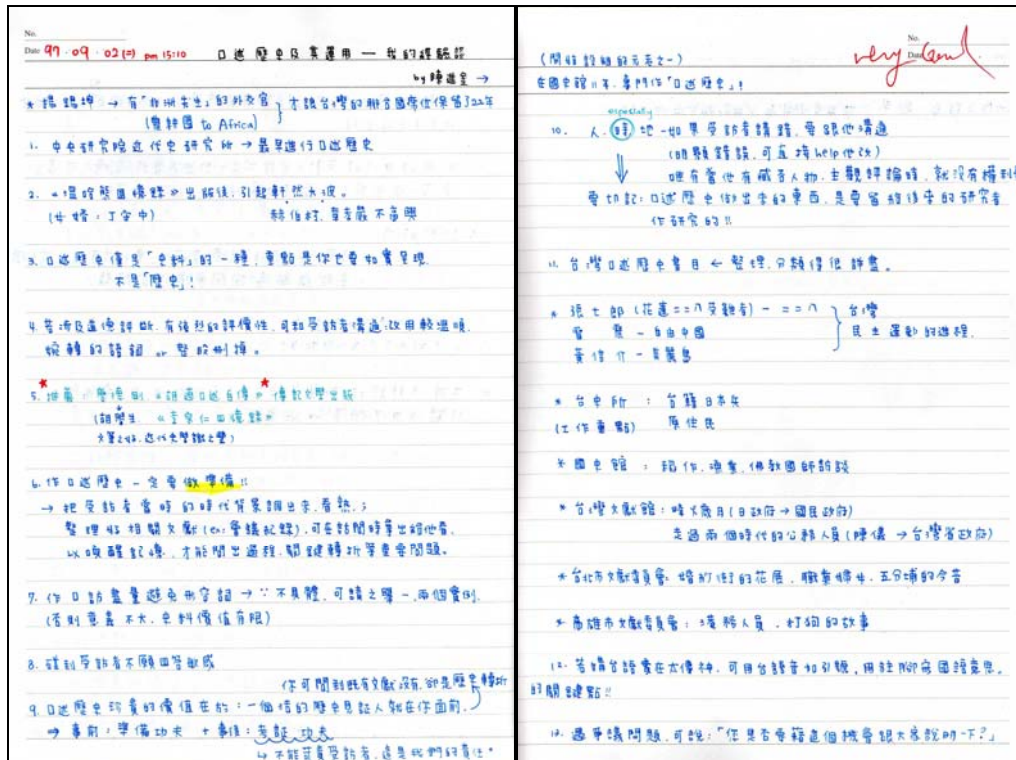 No.
Date 97.09.02(二) pm 15:10 口述歷史及其運用 — 我的經驗談
by 陳進金 →
* 楊錫坤 → 有「非洲先生」的外交官 } 才讓台灣的聯合國席位保留了22年
(農耕團 to Africa)
1. 中央研究院近代史研究所 → 最早進行口述歷史
2. 《溫哈熊回憶錄》出版後,引起軒然大波。
(女婿:丁守中) 郝伯村、章孝嚴不高興
3. 口述歷史僅是「史料」的一種,重點是你也要如實呈現
不是「歷史」!
4. 若涉及道德評斷、有強烈的評價性,可和受訪者溝通,改用較溫順、
婉轉的語詞 or 整段刪掉。
5. 推薦:唐德剛,《胡適口述自傳》傳記文學出版
(胡學生 《李宗仁回憶錄》
文筆之好,近代史學離之譽)
6. 作口述歷史一定要做準備!!
→ 把受訪者當時的時代背景調出來,看熟;
整理好相關文獻(ex:會議記錄),可在訪問時拿出給他看,
以喚醒記憶,才能問出過程、關鍵轉折等重要問題。
7. 作口訪盡量避免形容詞 → ∵不具體,可請之舉一、兩個實例。
(否則意義不大,史料價值有限)
8. 碰到受訪者不願回答敏感
你可問到既有文獻沒有,卻是歷史轉折
9. 口述歷史珍貴的價值在於:一個活的歷史見証人就在你面前。
⇒ 事前:準備功夫 + 事後:考証功夫
↳ 不能苛責受訪者,這是我們的責任。
No.
Date
very Good
(開始設館的元老之一)
在國史館11年,專門作「口述歷史」!
especially
10. 人、時、地-如果受訪者講錯,要跟他溝通
(明顯錯誤,可直接help他改)
唯有當他有臧否人物、主觀評論時,就沒有權利
要切記:口述歷史做出來的東西,是要留給後來的研究者
作研究的!!
11. 台灣口述歷史書目 ← 整理、分類得很詳盡。
* 張七郎(花蓮二二八受難者)- 二二八 } 台灣
雷震 - 自由中國 民主運動的進程。
黃信介 - 美麗島
* 台史所:台籍日本兵
(工作重點) 原住民
* 國史館:稻作、漁業、佛教國師訪談
* 台灣文獻館:時代歲月(日政府→國民政府)
走過兩個時代的公務人員(陳儀 → 台灣省政府)
* 台北市文獻委員會:婚紗街的花展、職業婦女、五分埔的今昔
* 高雄市文獻委員會:港務人員、打狗的故事
12. 若講台語實在太傳神,可用台語音加引號,用註腳寫國語意思。
的關鍵點!!
13. 遇爭議問題,可說:「您是否要藉這個機會跟大家說明一下?」